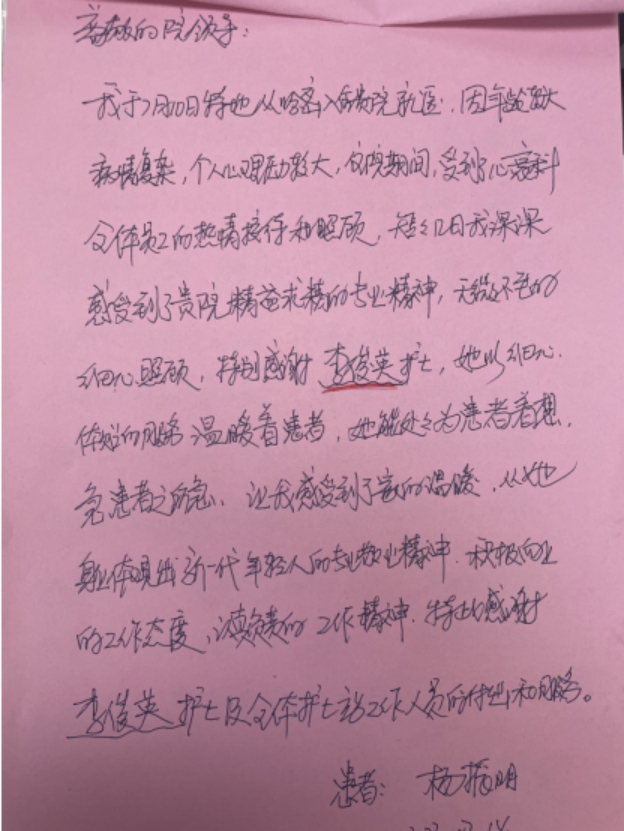 尊敬的院领导:
我于7月10日特地从哈密入住贵院就医.因年龄较大
病情复杂,个人心理压力较大,住院期间,受到了心衰科
全体员工的热情接待和照顾,短短几日我深深
感受到了贵院精益求精的专业精神,无微不至的
细心照顾,特别感谢李俊英护士,她以细心.
体贴的服务温暖着患者,她能处处为患者着想.
急患者之所急.让我感受到了家的温暖.从她
身上体现出新一代年轻人的专业敬业精神.积极向上
的工作态度,认真负责的工作精神.特此感谢
李俊英护士及全体护士站工作人员的付出和服务。
患者:杨 明